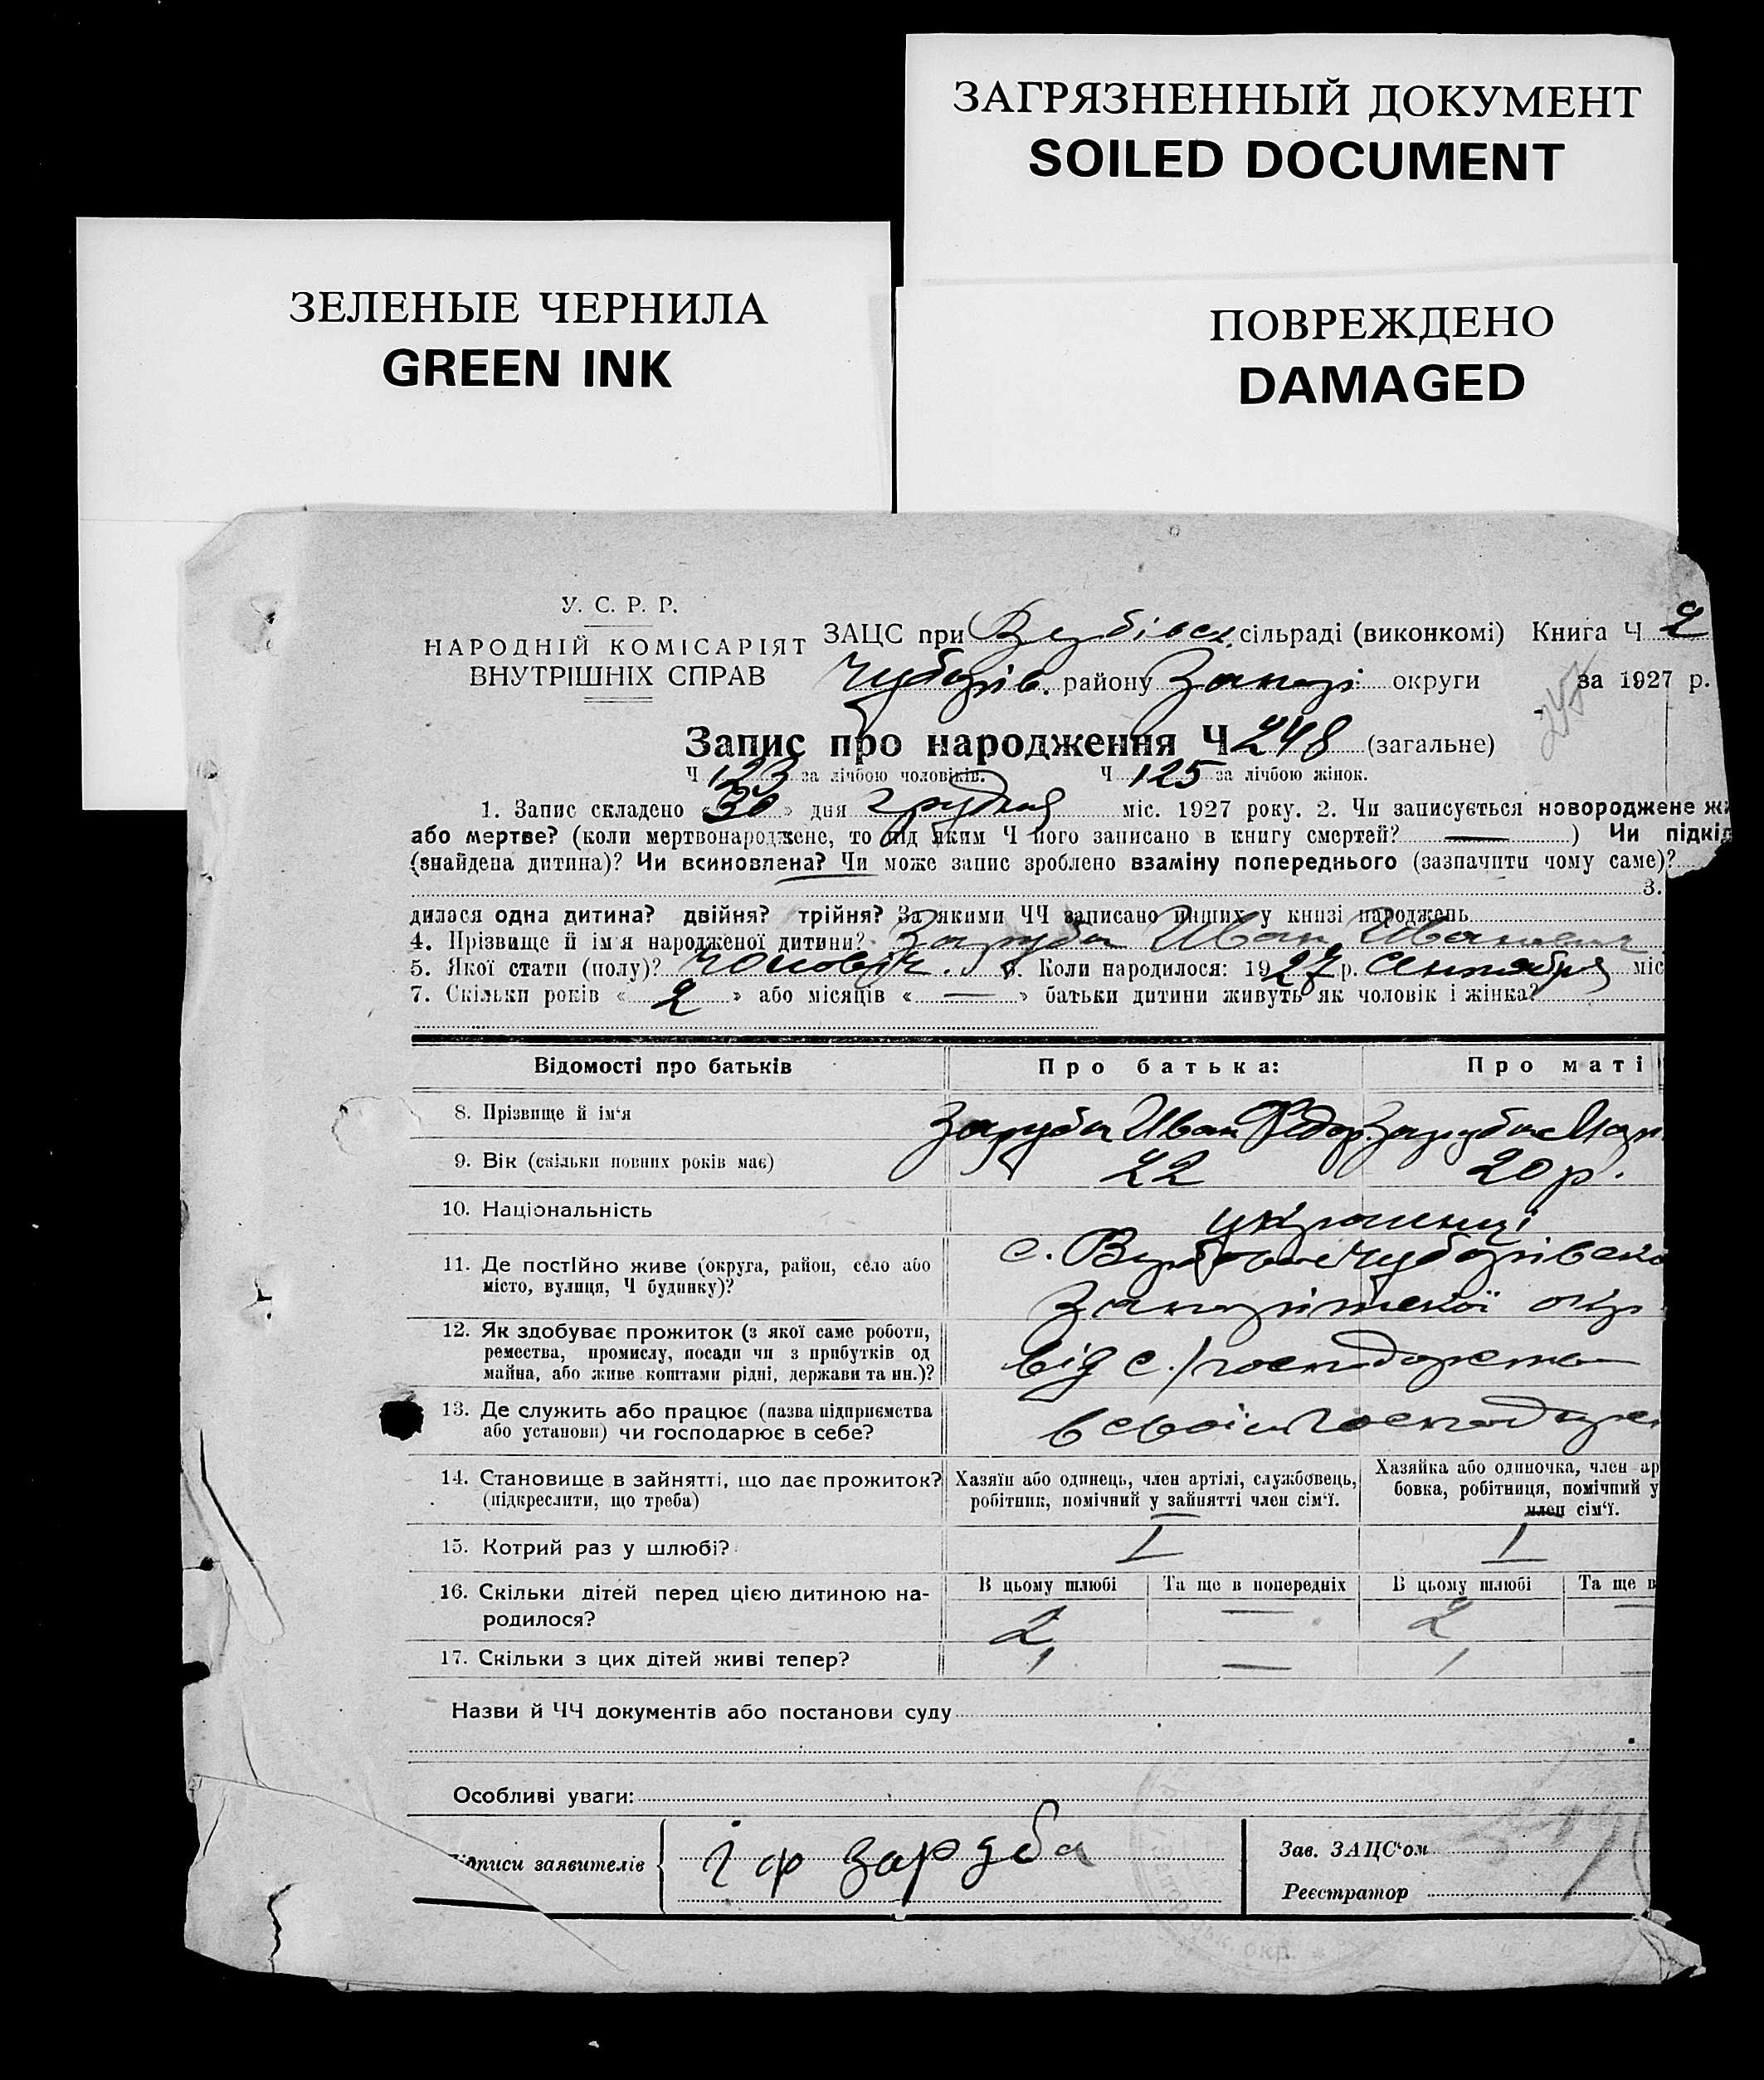 ЗАГРЯЗНЕННЫЙ ДОКУМЕНТ
SOILED DOCUMENT
ЗЕЛЕНЫЕ ЧЕРНИЛА
GREEN INK
ПОВРЕЖДЕНО
DAMAGED
У. С. Р. Р.
НАРОДНІЙ КОМІСАРІЯТ
ВНУТРІШНІХ СПРАВ
ЗАЦС при Вербівск. сільраді (виконкомі) Книга Ч 2
Чубарів. району Запорі округи за 1927 р.
245
Запис про народження Ч 248 (загальне)
Ч 123 за лічбою чоловіків. Ч 125 за лічбою жінок.
1. Запис складено «30» дня грудня міс. 1927 року. 2. Чи записується новороджене жи
або мертве? (коли мертвонароджене, то під яким Ч його записано в книгу смертей? — ) Чи підкід
(знайдена дитина)? Чи всиновлена? Чи може запис зроблено взаміну попереднього (зазначити чому саме)?
3.
дилася одна дитина? двійня? трійня? За якими ЧЧ записано инших у книзі народжень
4. Прізвище й ім'я народженої дитини? Заруба Иван Иванович
5. Якої стати (полу)? чоловіч. 6. Коли народилося: 1927 р. Сентября міс
7. Скільки років «2» або місяців «—» батьки дитини живуть як чоловік і жінка?
Відомості про батьків Про батька: Про маті
8. Прізвище й ім'я Заруба Иван Федор. Заруба Мар
9. Вік (скільки повних років має) 22 20 р.
10. Національність українці
11. Де постійно живе (округа, район, село або
місто, вулиця, Ч будинку)?
с. Вербове Чубарівско
Запорізської окр
12. Як здобуває прожиток (з якої саме роботи,
ремества, промислу, посади чи з прибутків од
майна, або живе коштами рідні, держави та ин.)?
від с./господарства
13. Де служить або працює (назва підприємства
або установи) чи господарює в себе?
в своїм господарс
14. Становище в зайнятті, що дає прожиток?
(підкреслити, що треба)
Хазяїн або одинець, член артілі, службовець,
робітник, помічний у зайнятті член сім'ї.
Хазяйка або одиночка, член ар
бовка, робітниця, помічний у
член сім'ї.
15. Котрий раз у шлюбі? I I
16. Скільки дітей перед цією дитиною на-
родилося?
В цьому шлюбі Та ще в попередніх В цьому шлюбі Та ще в
2 — 2 —
17. Скільки з цих дітей живі тепер? 1 — 1 —
Назви й ЧЧ документів або постанови суду
Особливі уваги:
ідписи заявителів
і ф заруба
Зав. ЗАЦС'ом
Реєстратор
окр.